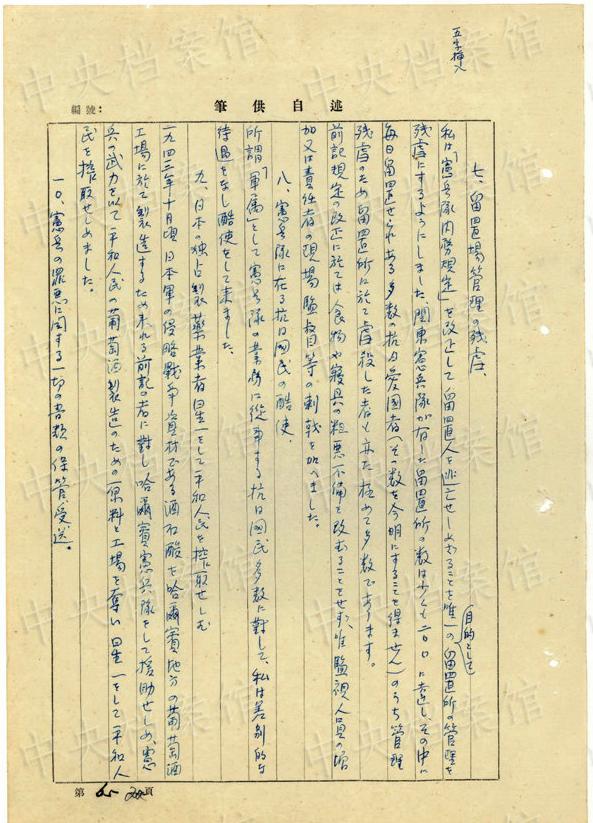 五字挿入
編號：
筆供自述
七、留置場管理の残虐、
目的として
私は「憲兵隊内務規定」を改正して留置人を逃亡せしめざることを唯一の留置所の管理を
残虐にするようにしました、関東憲兵隊が有した留置所の数は少くも二〇〇に達し、その中に
毎日留置せられある多数の抗日愛国者(その数を今明にすることを得ません)のうち管理
残虐のため留置所に於て虐殺した者も亦極めて多数であります。
前記規定の改正に於ては食物や寝具の粗悪不備を改むることをせず、唯監視人員の増
加又は責任者の現場監等の刺戟を加へました。
八、憲兵隊に在る抗日国民の酷使、
所謂「軍傭」として憲兵隊の業務に従事する抗日国民多数に対して、私は差別的な
待遇をなし酷使をして来ました。
九、日本の独占製薬業者星一をして平和人民を搾取せしむ
一九四三年十月頃日本軍の侵略戦争資材である酒石酸を哈爾賓地方の葡萄酒
工場に於て製造するため来れる前記の者に対し哈爾賓憲兵隊をして援助せしめ、憲
兵の武力を以て平和人民の葡萄酒製造のための原料と工場を奪い星一をして平和人
民を搾取せしめました。
一〇、憲兵の罪悪に関する一切の書類の保管、受送。
第 頁
中央档案馆